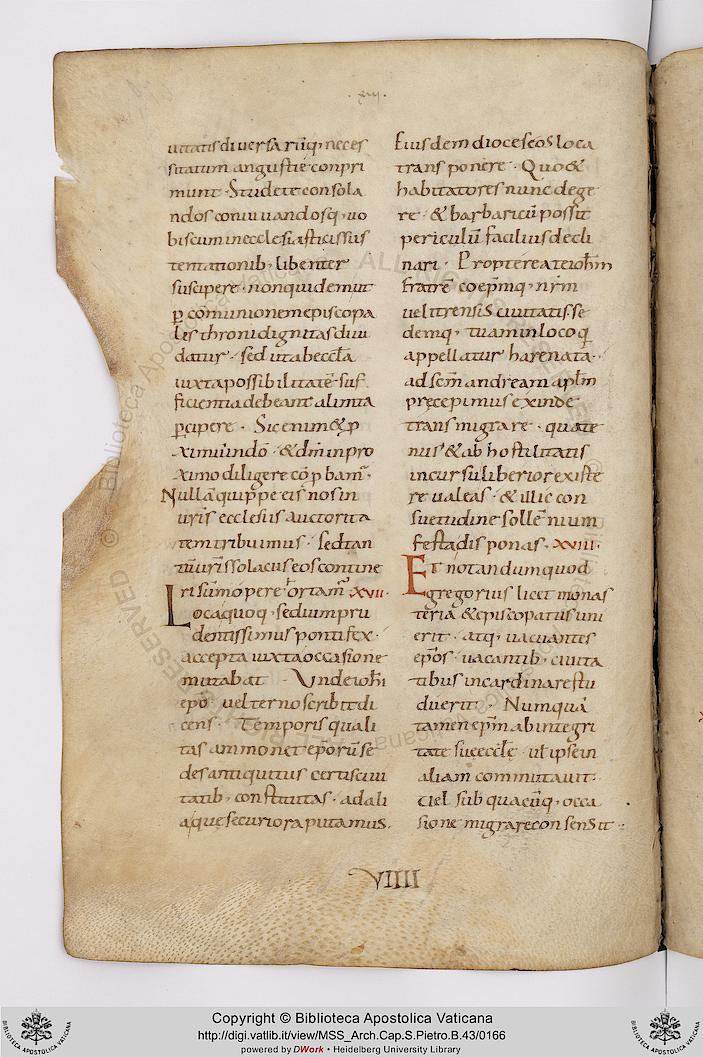 ·xvii·
uitatis diversarūq; neces
sitatum angustie conpri
munt · Studete consola
ndos convivandosq; vo
biscum in ecclesiasticis suis
tentationib; libenter
suscipere · non quidem ut
p̱ communionem episcopa
lis throni dignitas divi
datur · sed ut ab eccła
iuxta possibilitatē suf
ficientia debeant alimta
p̱cipere · Sic enim & p̱
ximū indō · & dm̄ in pro
ximo diligere cōp̱bam̄ ·
Nullā quippe eis nos in
uris̄ ecclesiis auctorita
tem tribuimus · sed tan
tū uris̄ solaciis eos contine
ri sūmo pere hortam̄ · xvii ·
Loca quoq; sedium pru
dentissimus pontifex ·
accepta iuxta occasione
mutabat · Unde ioħi
epō velterno scribit di
cens · Temporis quali
tas ammonet epōrū se
des antiquitus certis civi
tatib; constitutas · ad ali
a que securiora putamus ·
Eiusdem dioceseos loca
transponere · Quo &
habitatores nunc dege
re · & barbaricū possit
periculū facilius decli
nari · Propterea te ioħm
fratrē coepm̄q; nr̄m
velitrensis civitatis se
demq; tuam in loco q̄
appellatur harenata ·
ad scm̄ andream aplm̄
precepimus exinde
transmigrare · quate
nus & ab hostilitatis
incursu liberior existe
re valeas · & illic con
suetudine sollēnium
festa disponas · xviii ·
Et notandum quod
gregorius licet monas
teria & episcopatus uni
erit · atq; vacuantes
epōs · vacantib; civita
tibus incardinare stu
duerit · Numquā
tamen epm̄ ab integri
tate suę ecclę · vł ipse in
aliam commutavit ·
vel sub quacūq; occa
sione migrare consensit :·
VIIII
Copyright © Biblioteca Apostolica Vaticana
http://digi.vatlib.it/view/MSS_Arch.Cap.S.Pietro.B.43/0166
powered by DWork • Heidelberg University Library